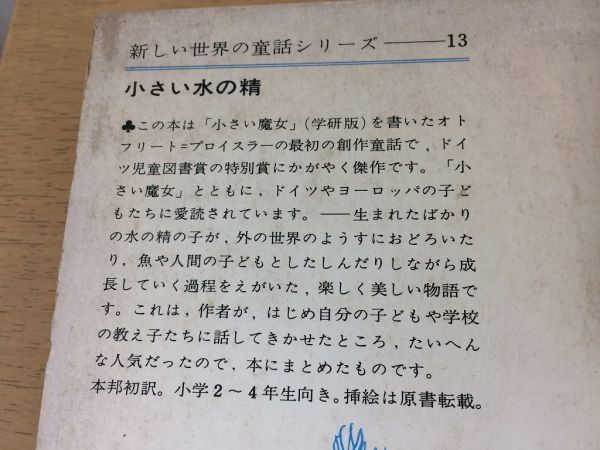 新しい世界の童話シリーズ――13
小さい水の精
♣この本は「小さい魔女」(学研版)を書いたオト
フリート=プロイスラーの最初の創作童話で，ドイ
ツ児童図書賞の特別賞にかがやく傑作です。「小
さい魔女」とともに，ドイツやヨーロッパの子ど
もたちに愛読されています。――生まれたばかり
の水の精の子が，外の世界のようすにおどろいた
り，魚や人間の子どもとしたしんだりしながら成
長していく過程をえがいた，楽しく美しい物語で
す。これは，作者が，はじめ自分の子どもや学校
の教え子たちに話してきかせたところ，たいへん
な人気だったので，本にまとめたものです。
本邦初訳。小学2～4年生向き。挿絵は原書転載。